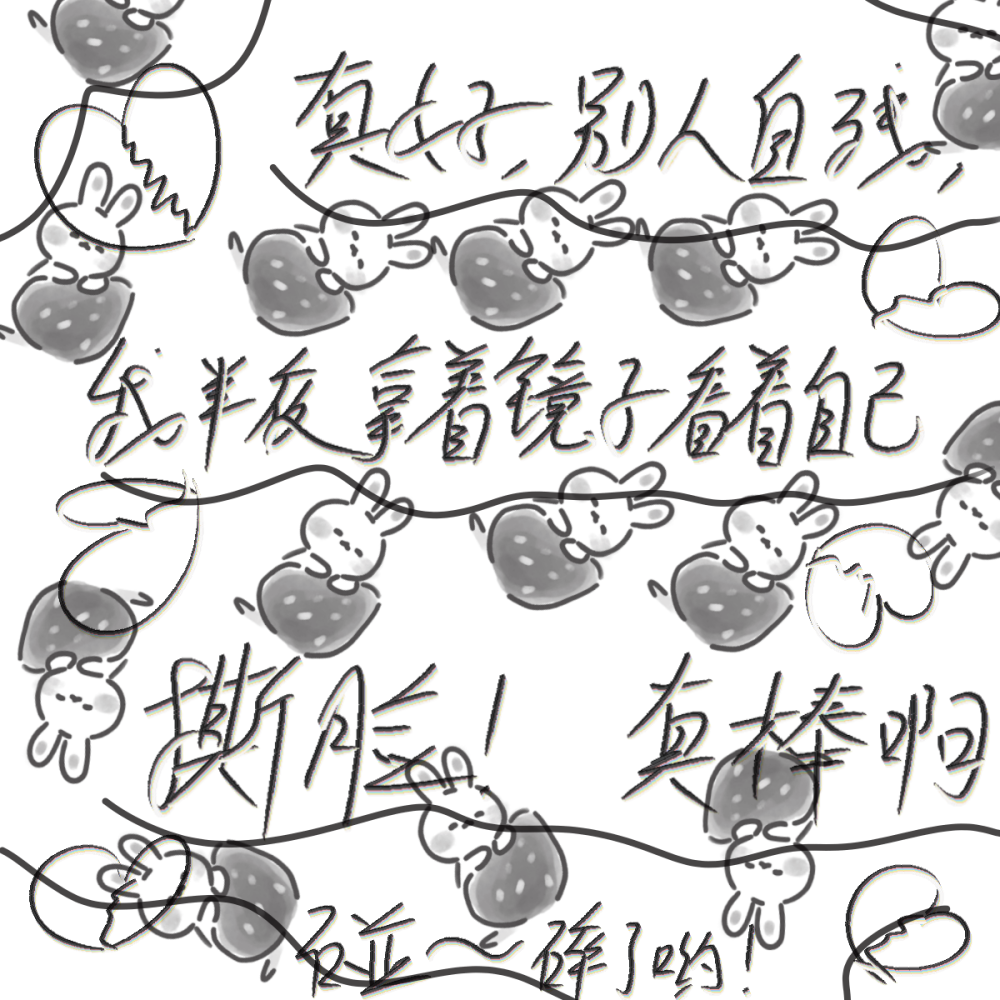 真好，别人自残，
我半夜拿着镜子看着自己
撕脸！ 真棒啊
碰～碎了哟！